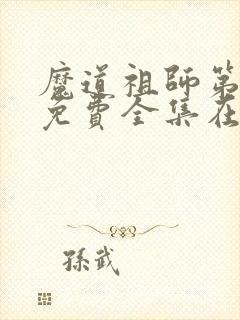 魔道祖師第
免費全集在
孫武